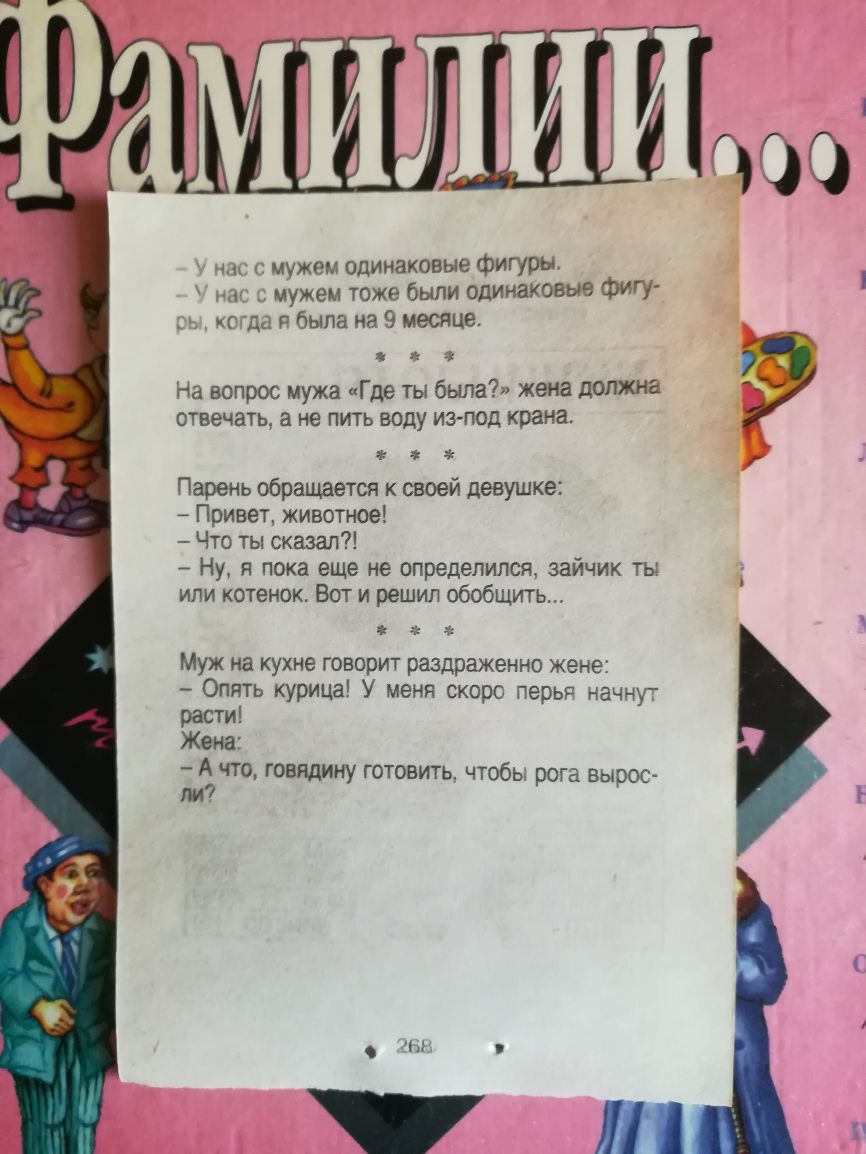 Фамилии...
– У нас с мужем одинаковые фигуры.
– У нас с мужем тоже были одинаковые фигу-
ры, когда я была на 9 месяце.
* * *
На вопрос мужа «Где ты была?» жена должна
отвечать, а не пить воду из-под крана.
* * *
Парень обращается к своей девушке:
– Привет, животное!
– Что ты сказал?!
– Ну, я пока еще не определился, зайчик ты
или котенок. Вот и решил обобщить...
* * *
Муж на кухне говорит раздраженно жене:
– Опять курица! У меня скоро перья начнут
расти!
Жена:
– А что, говядину готовить, чтобы рога вырос-
ли?
268